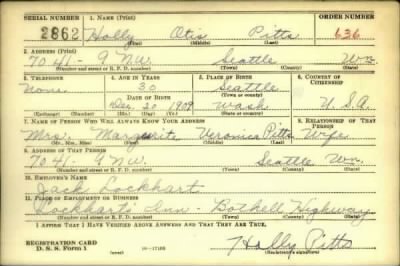 SERIAL NUMBER 1. NAME (Print) ORDER NUMBER
2862 Holly Otis Pitts 636
(First) (Middle) (Last)
2. ADDRESS (Print)
7041-9 N.W. Seattle Wn
(Number and street or R. F. D. number) (Town) (County) (State)
3. TELEPHONE 4. AGE IN YEARS 5. PLACE OF BIRTH 6. COUNTRY OF CITIZENSHIP
None 30 Seattle
DATE OF BIRTH (Town or county)
Dec. 20 1909 Wash U.S.A.
(Mo.) (Day) (Yr.) (State or country)
7. NAME OF PERSON WHO WILL ALWAYS KNOW YOUR ADDRESS 8. RELATIONSHIP OF THAT PERSON
Mrs. Marguerite Veronica Pitts Wife
(Mr., Mrs., Miss) (First) (Middle) (Last)
9. ADDRESS OF THAT PERSON
7041-9 N.W. Seattle Wn.
(Number and street or R. F. D. number) (Town) (County) (State)
10. EMPLOYER'S NAME
Jack Lockhart
11. PLACE OF EMPLOYMENT OR BUSINESS
Lockharts Inn - Bothell Highway
(Number and street or R. F. D. number) (Town) (County) (State)
I AFFIRM THAT I HAVE VERIFIED ABOVE ANSWERS AND THAT THEY ARE TRUE.
REGISTRATION CARD
D. S. S. Form 1 16-17105 Holly Pitts
(Registrant's signature)